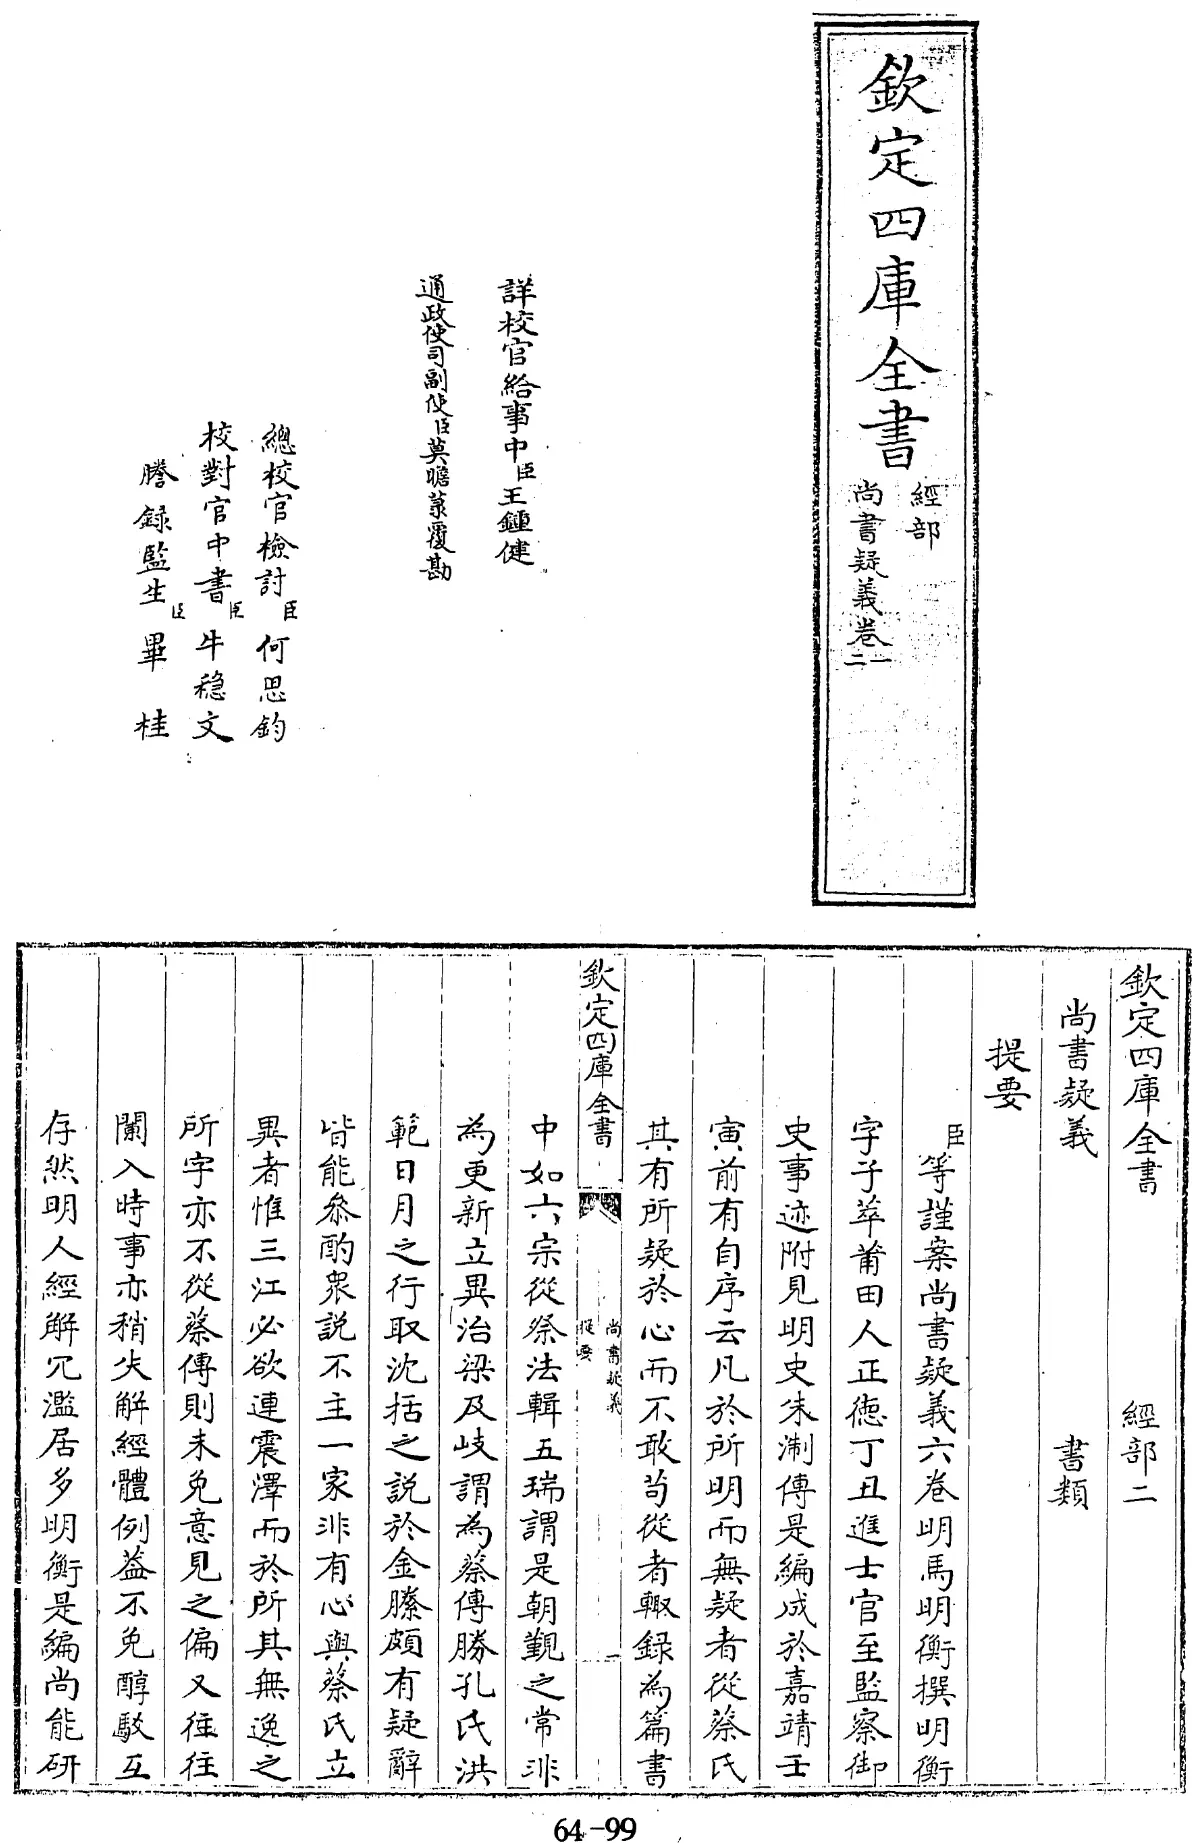 欽定四庫全書
經部
尚書疑義卷一
二
詳校官給事中臣王鍾健
通政使司副使臣莫瞻菉覆勘
總校官檢討臣何思鈞
校對官中書臣牛稔文
謄錄監生臣畢桂
欽定四庫全書 經部二
尚書疑義 書類
提要
臣等謹案尚書疑義六卷明馬明衡撰明衡
字子萃莆田人正德丁丑進士官至監察御
史事迹附見明史朱淛傳是編成於嘉靖壬
寅前有自序云凡於所明而無疑者從蔡氏
其有所疑於心而不敢苟從者輒録為篇書
欽定四庫全書
尚書疑義
提要
一
中如六宗從祭法輯五瑞謂是朝覲之常非
為更新立異治梁及岐謂為蔡傳勝孔氏洪
範日月之行取沈括之說於金縢頗有疑辭
皆能叅酌衆說不主一家非有心與蔡氏立
異者惟三江必欲連震澤而於所其無逸之
所字亦不從蔡傳則未免意見之偏又往往
闌入時事亦稍失解經體例葢不免醇駁互
存然明人經解冗濫居多明衡是編尚能研
64-99